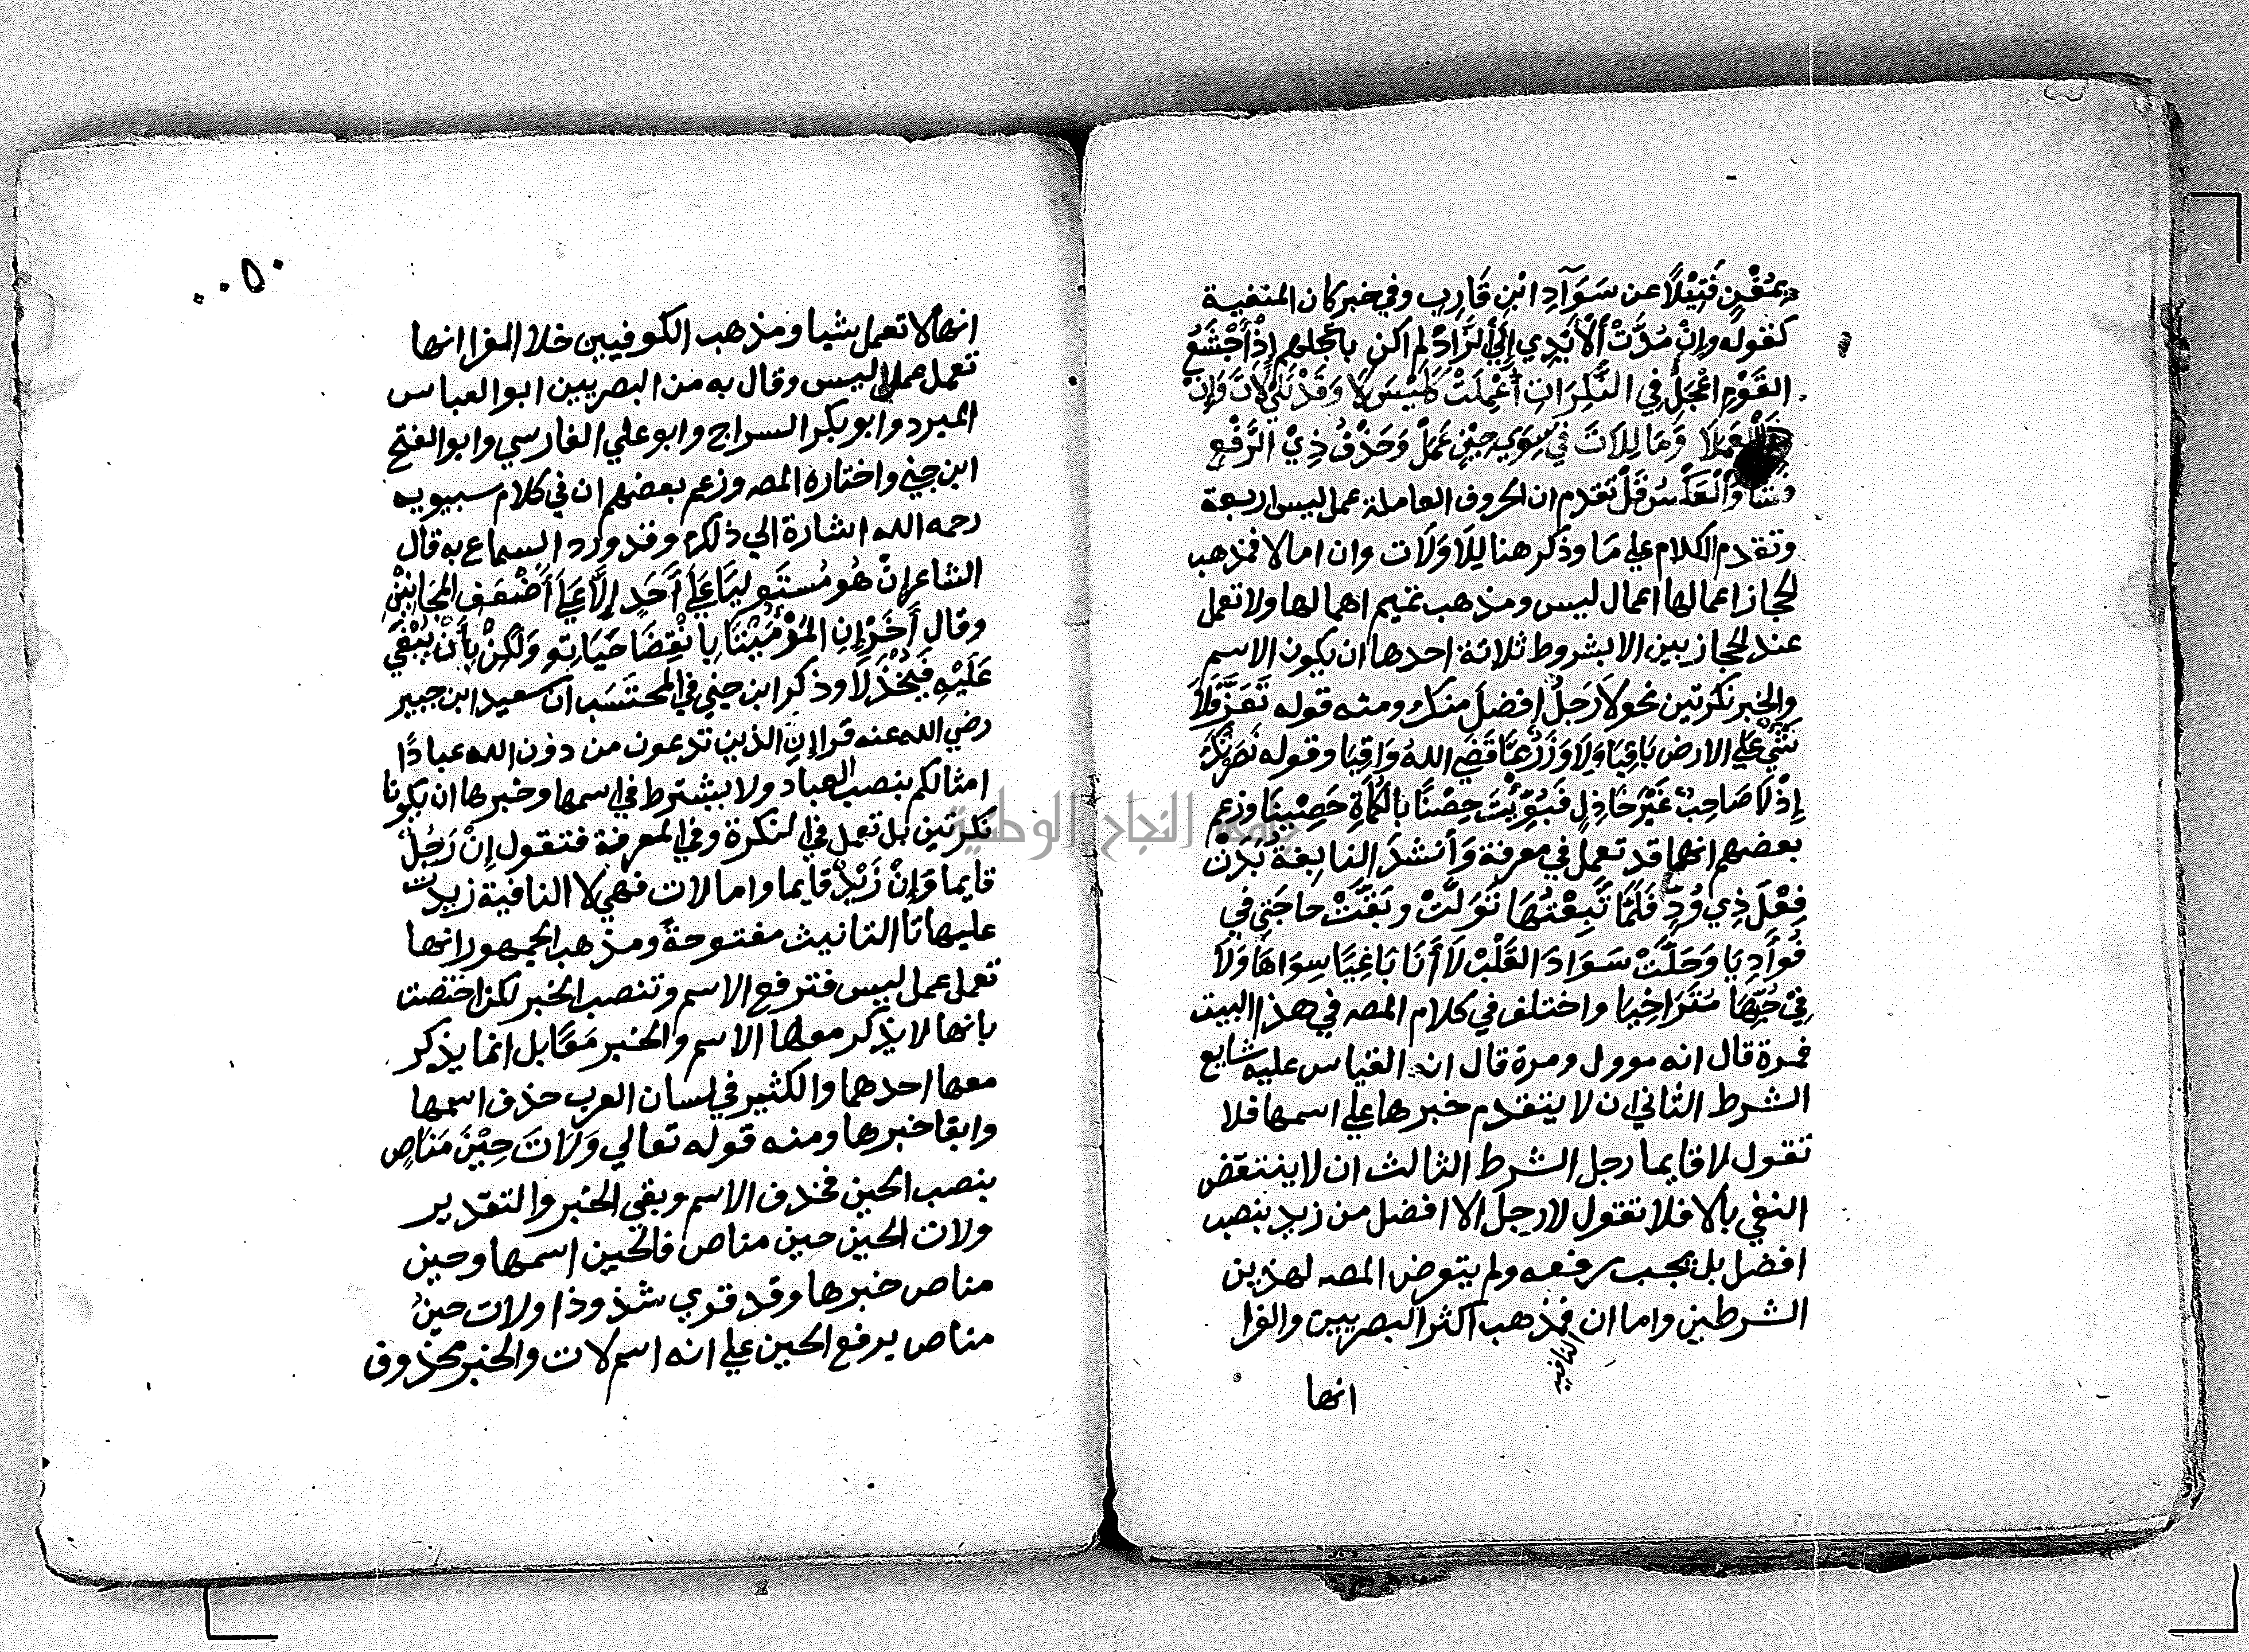 بِمُغْنٍ فَتِيْلًا عن سَوَآدِ ابْنِ قَارِبِ وفي خبر كان المنفية
كقوله وان مُدَّتْ ألأَيْدِي إِلَي الزَّادِ لم اكن باعجلهم إِذْ أَجْشَعُ
القَوْمِ اعْجَلُ فِي النَّكِرَاتِ أُعْمِلَتْ كَلَيْسَ لَا وَقَدْ تَلِي لَاتَ وَإِنْ
العَمَلَا وَمَا لِلَاتَ فِي سِوَي حِيْنٍ عَمَلْ وَحَذْفُ ذِيْ الرَّفْعِ
فشا وَالْعَكْسُ قَلْ تقدم ان الحروف العاملة عمل ليس اربعة
وتقدم الكلام علي مَا وذكر هنا لِلَا وَلَات وان اما لا فمذهب
الحجاز اعمالها اعمال ليس ومذهب تميم اهمالها ولا تعمل
عند الحجازيين الا بشروط ثلاثة احدها ان يكون الاسم
والخبر نكرتين نحو لَا رَجلٌ افضلَ منك ومنه قوله تَعَزَّ فَلَا
شَيْءٌ عَلَي الارض بَاقِيَا وَلَا وَزَرٌ مِمَّا قَضَي اللهُ وَاقِيَا وقوله نَصَرْتُكَ
إِذْ لَا صَاحِبٌ غَيْرَ خَاذِلٍ فَبُوِّئْتَ حِصْنًا بِالكُمَاةِ حَصِيْنَا وزعم
بعضهم انها قد تعمل في معرفة وَأنشدَ النابغة بَدَتْ
فِعْلَ ذِي وُدٍّ فَلَمَّا تَبِعْتُهَا تَوَلَّتْ وبَقَّتْ حاجَتِي في
فُوَأدِيَا وَحَلَّتْ سَوَادَ القَلْبِ لَا أَنَا بَاغِيَا سِوَاهَا وَلَا
فِيْ حُبِّهَا مُتَرَاخِيَا واختلف في كلام المصه في هذا البيت
فمرة قال انه موول ومرة قال ان القياس عليه شايع
الشرط الثاني ان لا يتقدم خبرها علي اسمها فلا
تقول لا قايما رجل الشرط الثالث ان لا ينتقض
النفي بألا فلا تقول لا رجل الا افضل من زيد بنصب
افضل بل يجب رفعه ولم يتعرض المصه لهذين
الشرطين واما ان فمذهب اكثر البصريين والفرا
النافية
انها
٥٠
انها لا تعمل شيا ومذهب الكوفيين خلا الفرا انها
تعمل عمل ليس وقال به من البصريين ابوا العباس
المبرد وابو بكر السراج وابو علي الفارسي وابوا الفتح
ابن جني واختاره المصه وزعم بعضهم ان في كلام سيبويه
رحمه الله اشارة الي ذلك وقد ورد السماع به قال
الشاعر إِنْ هُو مُستَوليَا عَلَي أَحَدٍ إِلَّا عَلَي أَضْعَفِ المَجَانِيْنِ
وقال أَخَر إِنِ المَرْؤُ مَيْتَا بِانْقِضَا حَيَاتِهِ وَلَكِنْ بِأَنْ يُبْغَي
عَلَيْهِ فَيُخْذَلَا وذكر ابن جني في المحتَسَب ان سعيد ابن جبير
رضي الله عنه قرا إنِ الذين تدعون من دون الله عبادًا
امثالكم بنصب العباد ولا يشترط في اسمها وخبرها ان يكونا
نكرتين بل تعمل في النكرة وفي المعرفة فتقول إِنْ رَجُلٌ
قايما وَإِنْ زَيْدٌ قايما واما لات فهي لا النافية زيدت
عليها تا التانيث مفتوحة ومذهب الجمهور انها
تعمل عمل ليس فترفع الاسم وتنصب الخبر لكن اختصت
بانها لا يذكر معها الاسم والخبر مَعًا بل انما يذكر
معها احدهما والكثير في لسان العرب حذف اسمها
وابقا خبرها ومنه قوله تعالي وَلَاتَ حِيْنَ مَنَاصٍ
بنصب الحين فحذف الاسم وبقي الخبر والتقدير
ولات الحين حين مناص فالحين اسمها وحين
مناص خبرها وقد قري شذوذا ولات حينُ
مناص برفع الحين علي انه اسم لات والخبر محذوف
جامعة النجاح الوطنية